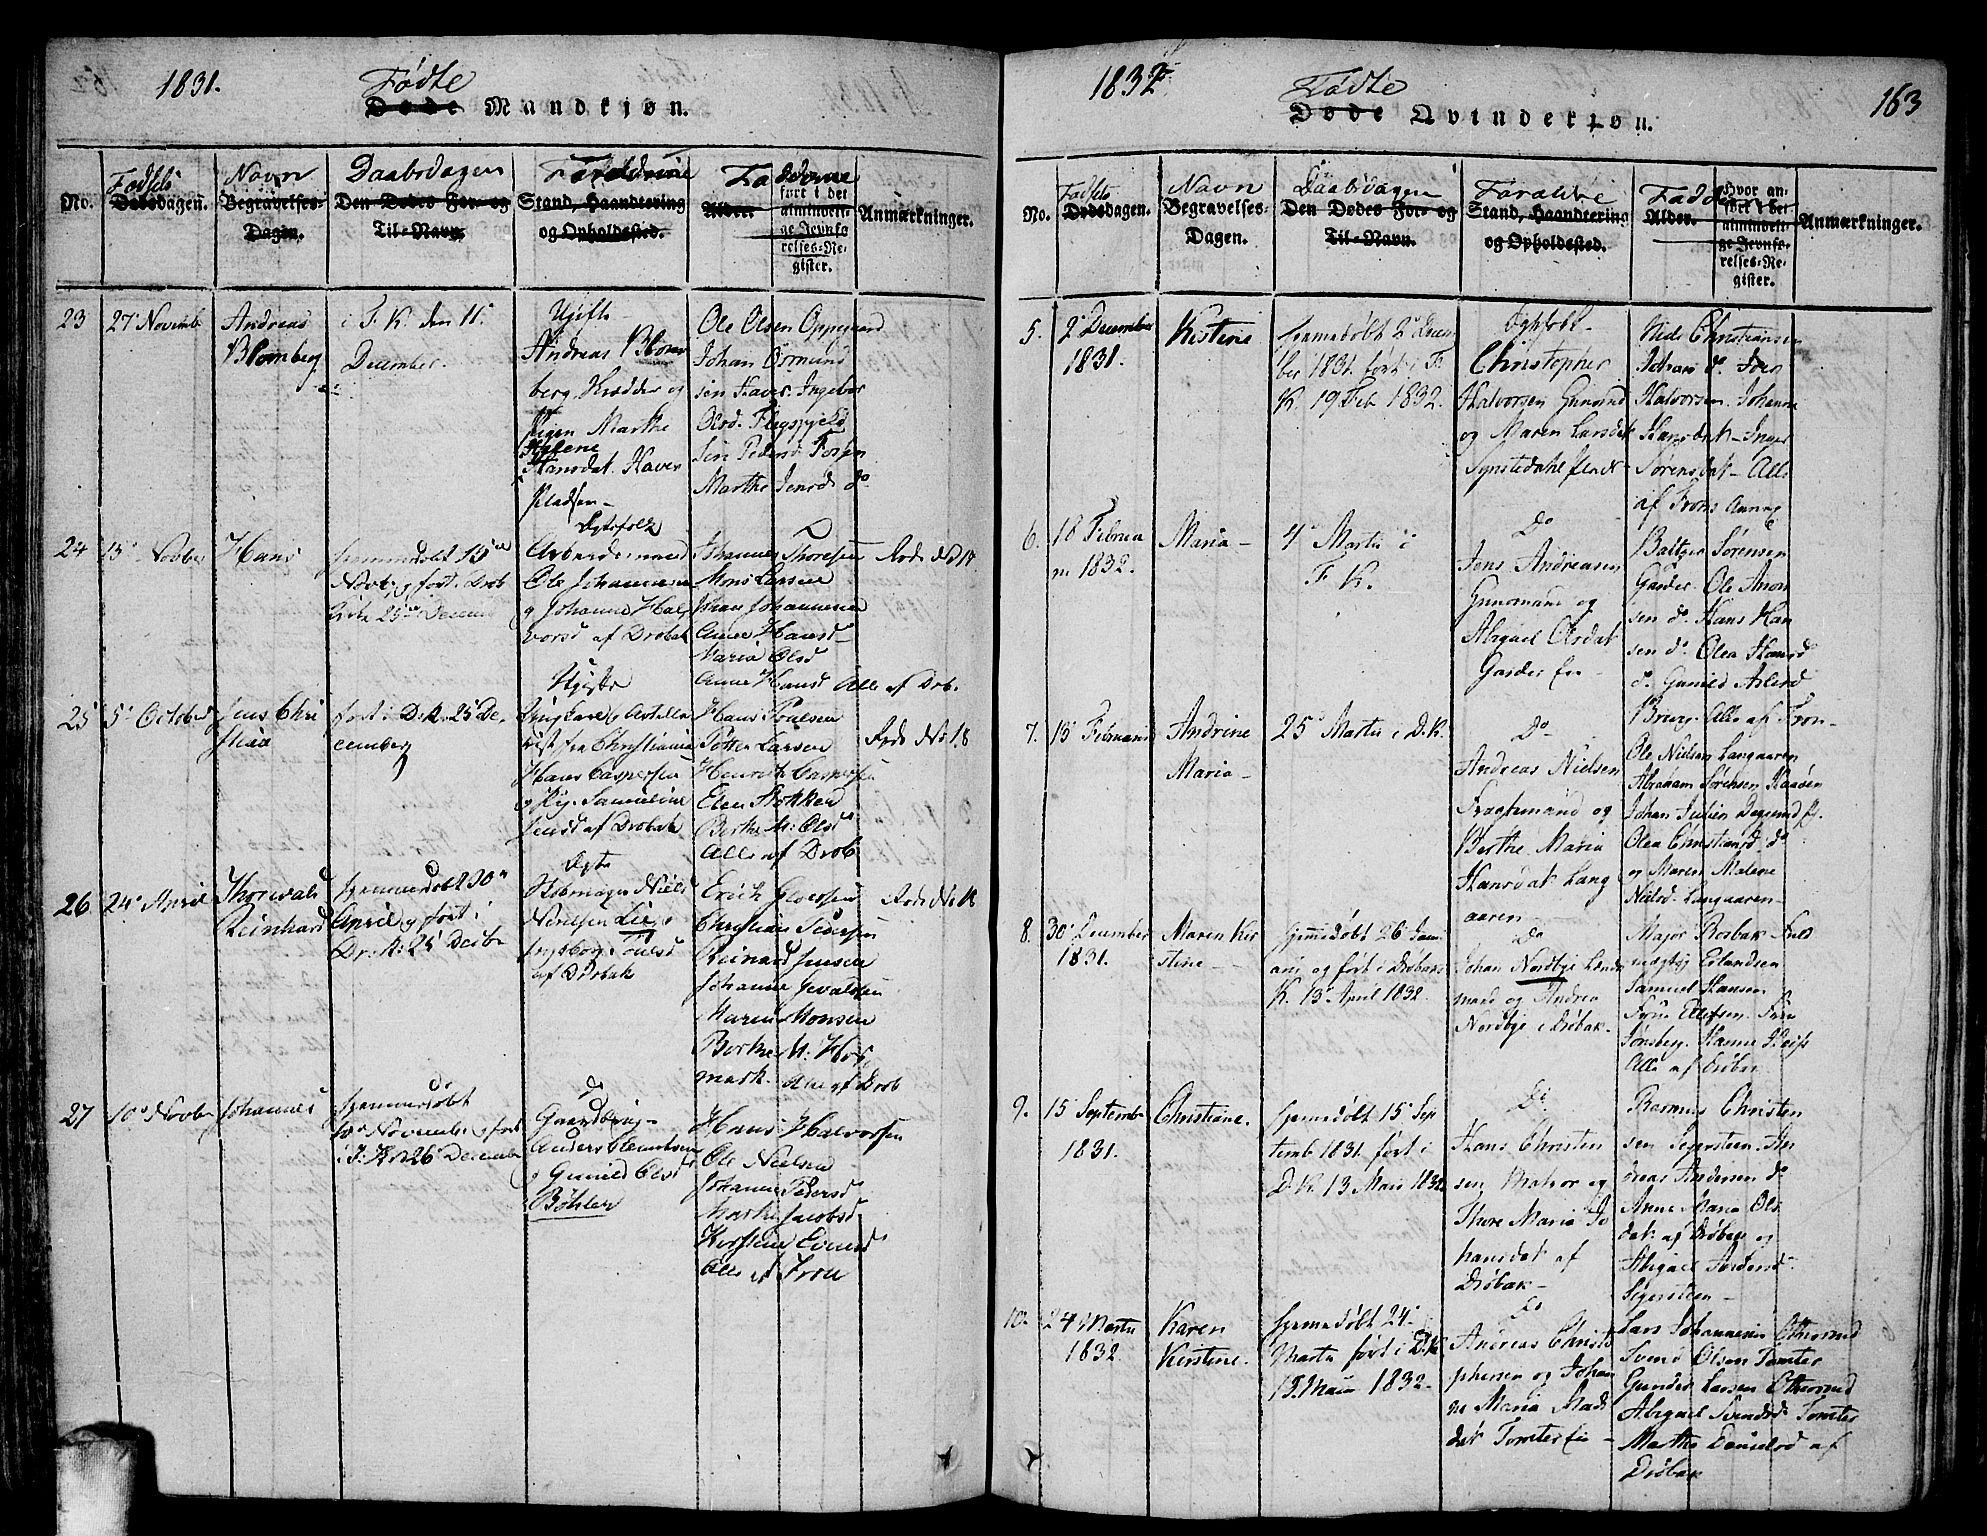 1831.
Födte
Døde Mandkjøn.
No.
Fødsels
Dødsdagen.
Navn
Begravelses
Dagen.
Daabsdagen
Den Dødes For- og
Til-Navn.
Forældrene
Stand, Haandtering
og Opholdssted.
Fadderne
Alder.
ført i det
almindeli-
ge Jevnfø-
relses-Re-
gister.
Anmærkninger.
23
27 Novemb
Andreas
Blomberg
i F. K. den 11.
December.
Ugifte
Andreas Blom
berg, Skrædder og
Pigen Marthe
Helene
Hansdat. Haver
Pladsen
Ole Olsen Oppegaard
Johan Ormund
sen Haver. Ingebor
Olsd.
Jen Pedersd
Marthe Jensd do
24
15 Novber
Hans
hjemmedøbt 15de
Novb. og ført i Drøb
Kirke 25de Decemb
Ægtefolk
Arbeidsmand
Ole Johannesen
og Johanne Hal
vorsd af Drøbak
Johannes Thoresen
Mons Larsen
Johan Johannesen
Anne Hansd
Maria Olsd
Anne Hansd Alle af Drøb.
Rode No 18
25
5 October
Jens Chri
stian
ført i D. K. 25 De
cemberg
Ugifte
Ungkarl og Artille
rist fra Christiania
Hans Caspersen
og Pig. Samueline
Jensd af Drøbak
Hans Poulsen
Petter Larsen
Henrik Caspersen
Elen Stokken
Berthe M: Olsd
Alle af Drøb
Rode No 18
26
24 April
Thorvald
Reinhard
hjemmedøbt 30
April og ført i
Dr. K: 25 Decbr
Ægte
Skomager Niels
Nielsen Lie og
Ingeborg Poulsd
af Drøbak
Erich Evensen
Christian Pedersen
Reinard Jensen
Johanne
Maren Monsen
Berthe M: Hof
mark. Alle af Drøb
Rode No 18
27
10 Novber
Johannes
hjemmedøbt
10 November og ført
i F: K: 26 December
Do
Gaardbrug
Anders Clemetsen
og Gunild Olsd
Bøhler
Hans Halvorsen
Ole Nielsen
Johanne Pedersd
Marthe Jacobsd
Kirstine Evensd
Alle af Fron
1832
Födte
Døde Qvindekjøn.
163
No.
Fødsels
Dødsdagen.
Navn
Begravelses-
Dagen.
Daabsdagen
Den Dødes For- og
Til-Navn.
Forældre
Stand, Haandtering
og Opholdssted.
Fadde
Alder.
Hvor an-
ført i det
almindeli-
ge Jevnfø-
relses-Re-
gister.
Anmærkninger.
5.
2 December
1831.
Kistine
hjemmedøbt 2 Decem
ber 1831. ført i F.
K. 19 Feb 1832.
Ægtefolk
Christopher
Halvorsen
og Maren Larsdat
Niels Christiansen
Johans do
Halvorsen. Johanne
Hansdat. Inger
Sørensdat Alle
af Frons Annex
6.
18 Februa
r 1832.
Maria
4 Marts i
F. K.
Do
Jens Andreasen
Grunomand og
Abigael Olsdat
Garder
Baltzer Sørensen
Garder. Ole Amon
sen do Hans Han
sen do Olea Hansd
do. Gunild Aslesd
Brung. Alle af Fron
7.
15 Februari
Andrine
Maria
25 Marts i D. K.
Do
Andreas Nielsen
Fragtemand og
Berthe Maria
Hansdat Lang
aaren
Ole Nielsen Langaaren
Abraham Sørensen Haaøen
Johan
Olea Christiansd do
og Maren Malene
Nielsd Langaaren
8.
30 December
1831.
Maren Kir
stine
hjemmedøbt 26 Janu
ari og ført i Drøbaks
K. 13 April 1832
Do
Johan Nordbye
mand og Andrea
Nordbye i Drøbak
Major Rosbak
Erlandsen
Samuel Hansen
Frue Ellefsen. Frue
Tønsberg. Hanne
Alle af Drøbak
9.
15 Septemb
1831.
Christiane.
hjemmedøbt 15 Sep
temb 1831. ført i
D. K. 13 Maii 1832
Do
Hans Christen
sen Matros og
Thore Maria Jo
hansdat af
Drøbak
Rasmus Christen
sen Segersteen. An
dreas Andersen do
Anne Maria Ols
dat. af Drøbak og
Abigael Andersd
Segersteen
10.
24 Marts
1832.
Karen
Kirstine.
hjemmedøbt 24
Marts ført i D. K
13. Maii 1832
Do
Andreas Christo
phersen og Johan
ne Maria Mads
dat Tomter
Lars Johannesen Ottersrud
Svend Olsen Tomter
Gunder Larsen Ottersrud
Abigael Svendsd Tomter
Marthe Danielsd af
Drøbak